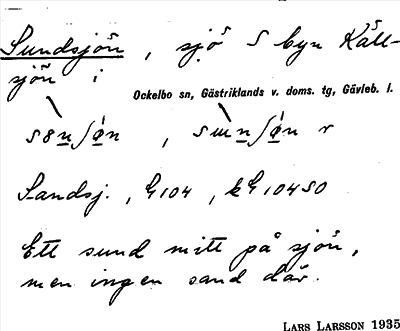 Sundsjön, sjö S byn Käll-
sjön i
Ockelbo sn, Gästriklands v. doms. tg, Gävleb. l.
Sandsj., G104, kG104SO
Ett sund mitt på sjön,
men ingen sand där.
LARS LARSSON 1935